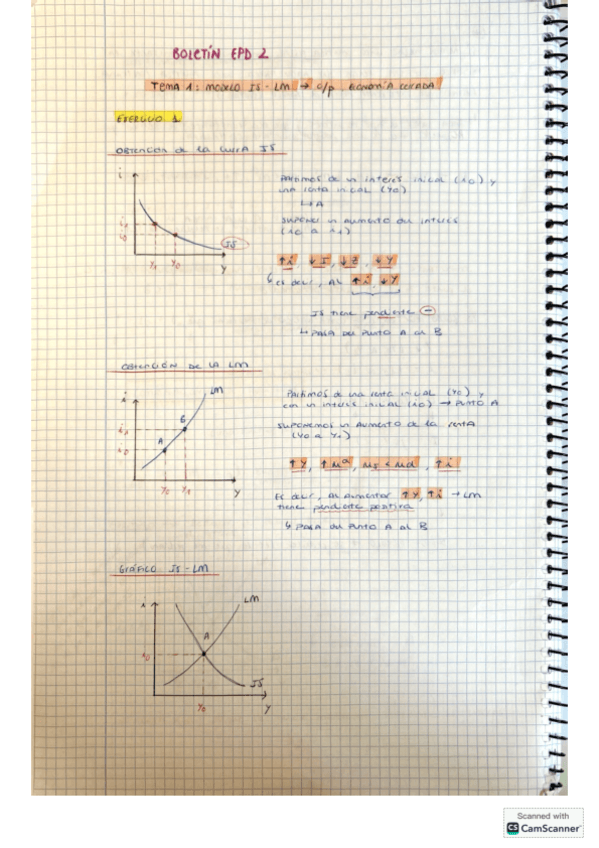 BOLETÍN EPD 2
TEMA 1: MODELO IS - LM → c/p ECONOMÍA CERRADA
EJERCICIO 1
OBTENCIÓN DE LA CURVA IS
i
i1
i0
IS
Y1 Y0 Y
PARTIMOS DE UN INTERÉS INICIAL (i0) Y
UNA RENTA INICIAL (Y0)
↳ A
SUPONEMOS UN AUMENTO DEL INTERÉS
(i0 A i1)
↑i, ↓I, ↓Z, ↓Y
↳ ES DECIR, AL ↑i, ↓Y
IS TIENE PENDIENTE −
↳ PASA DEL PUNTO A AL B
OBTENCIÓN DE LA LM
i
LM
B
i1
A
i0
Y0 Y1 Y
PARTIMOS DE UNA RENTA INICIAL (Y0) Y
CON UN INTERÉS INICIAL (i0) → PUNTO A
SUPONEMOS UN AUMENTO DE LA RENTA
(Y0 A Y1)
↑Y, ↑Md, Ms < Md, ↑i
ES DECIR, AL AUMENTAR ↑Y, ↑i → LM
TIENE PENDIENTE POSITIVA
↳ PASA DEL PUNTO A AL B
GRÁFICO IS - LM
i
LM
A
i0
IS
Y0 Y
Scanned with
CS CamScanner